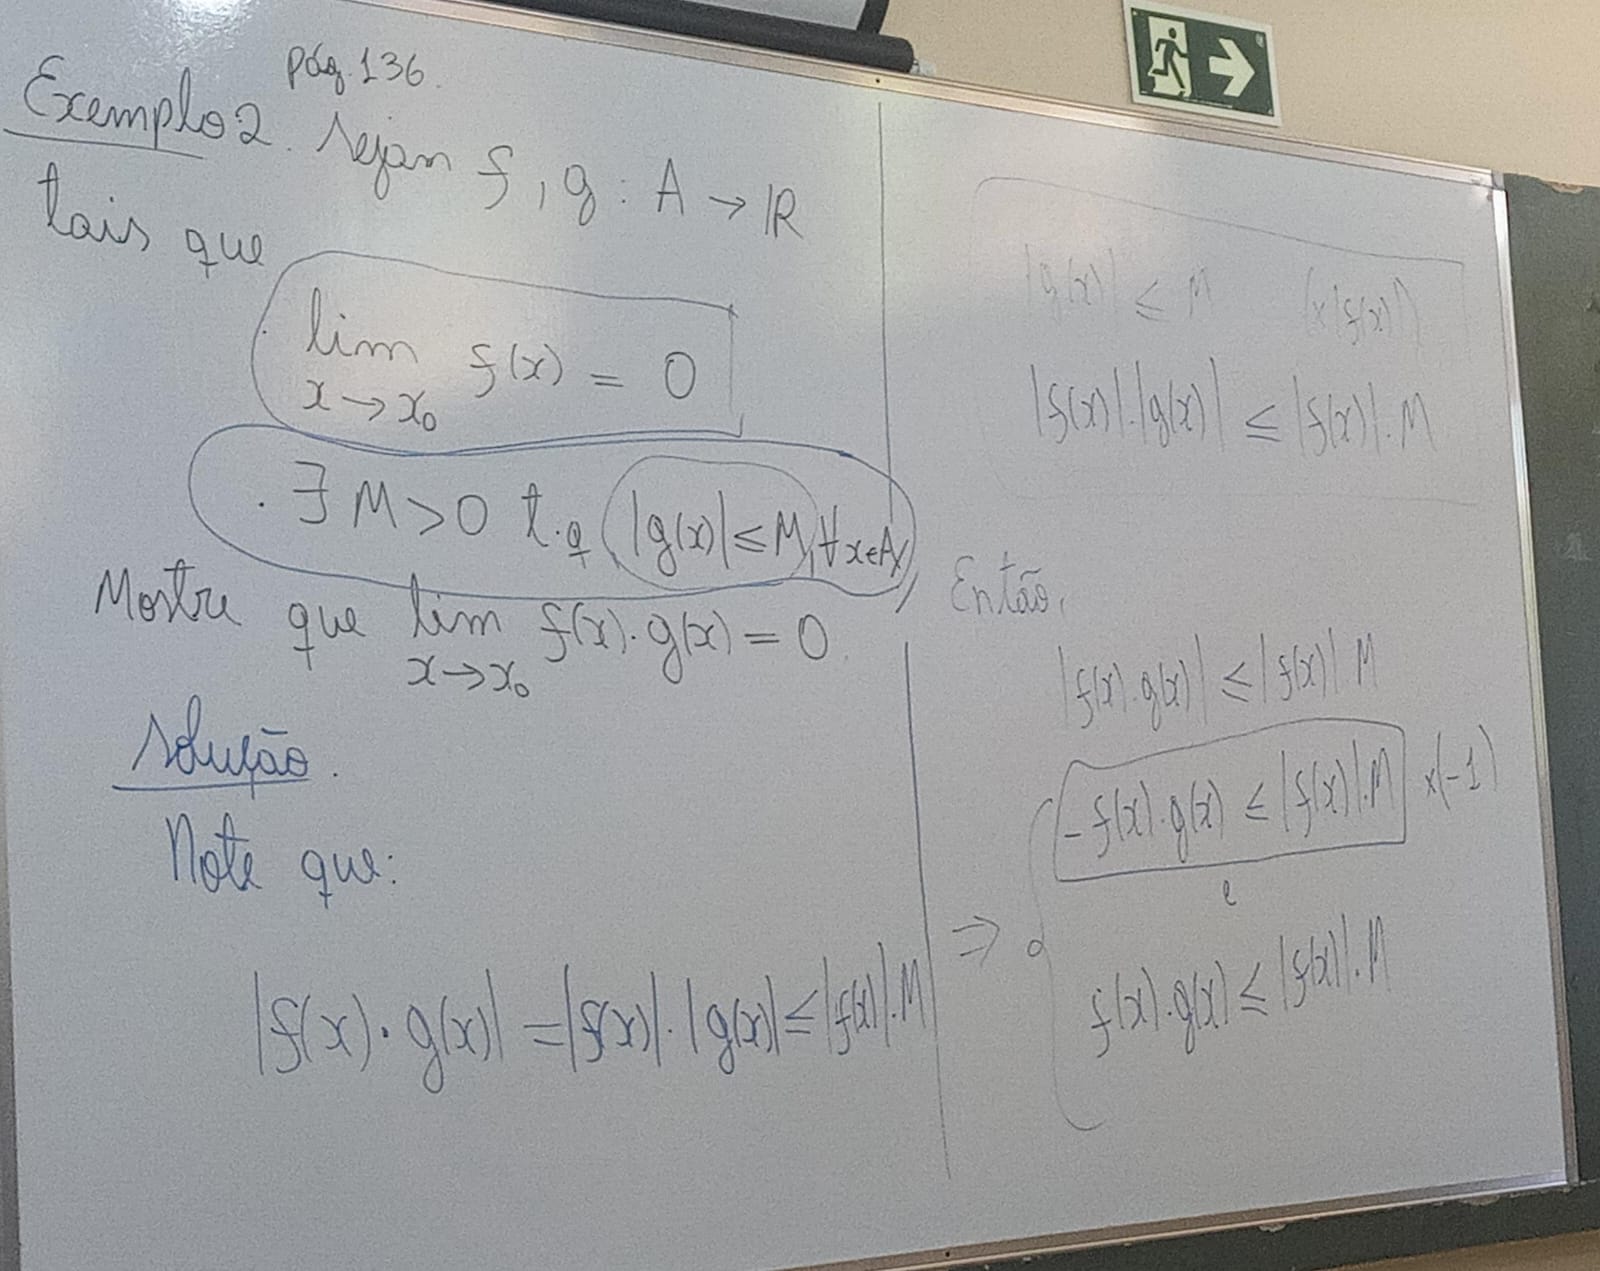 pág. 136.
Exemplo 2. Sejam f, g : A → ℝ
tais que
lim f(x) = 0
x → x₀
. ∃ M > 0 t.q |g(x)| ≤ M, ∀ x ∈ A
Mostre que lim f(x) . g(x) = 0.
x → x₀
Solução.
Note que:
|f(x) · g(x)| = |f(x)| . |g(x)| ≤ |f(x)| . M
|g(x)| ≤ M (x |f(x)|)
|f(x)| . |g(x)| ≤ |f(x)| . M
Então,
|f(x) . g(x)| ≤ |f(x)| . M
- f(x) . g(x) ≤ |f(x)| . M x(-1)
e
⇒
f(x) . g(x) ≤ |f(x)| . M